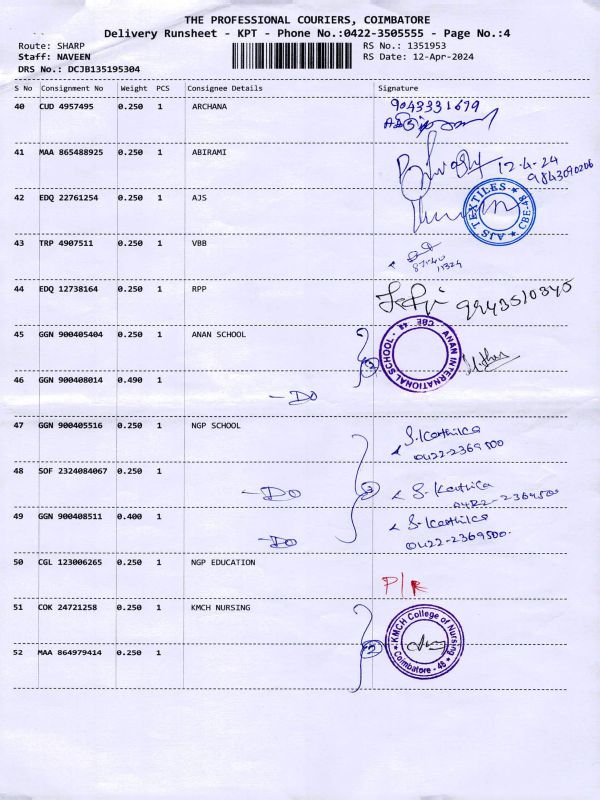 THE PROFESSIONAL COURIERS, COIMBATORE
Delivery Runsheet - KPT - Phone No.:0422-3505555 - Page No.:4
Route: SHARP
Staff: NAVEEN
DRS No.: DCJB135195304
RS No.: 1351953
RS Date: 12-Apr-2024
S No Consignment No Weight PCS Consignee Details Signature
40 CUD 4957495 0.250 1 ARCHANA 9043331679
41 MAA 865488925 0.250 1 ABIRAMI 12-4-24
9843090206
42 EDQ 22761254 0.250 1 AJS
AJS TEXTILES CBE-48
43 TRP 4907511 0.250 1 VBB
44 EDQ 12738164 0.250 1 RPP 9943510345
45 GGN 900405404 0.250 1 ANAN SCHOOL 2
ANAN INTERNATIONAL SCHOOL - CBE - 48
46 GGN 900408014 0.490 1 - DO
47 GGN 900405516 0.250 1 NGP SCHOOL S. Karthika
0422-2369500
48 SOF 2324084067 0.250 1 - DO 3 S. Karthika
0422-2369500
49 GGN 900408511 0.400 1 - DO S. Karthika
0422-2369500.
50 CGL 123006265 0.250 1 NGP EDUCATION P/R
51 COK 24721258 0.250 1 KMCH NURSING
KMCH College of Nursing Coimbatore - 48
52 MAA 864979414 0.250 1 2